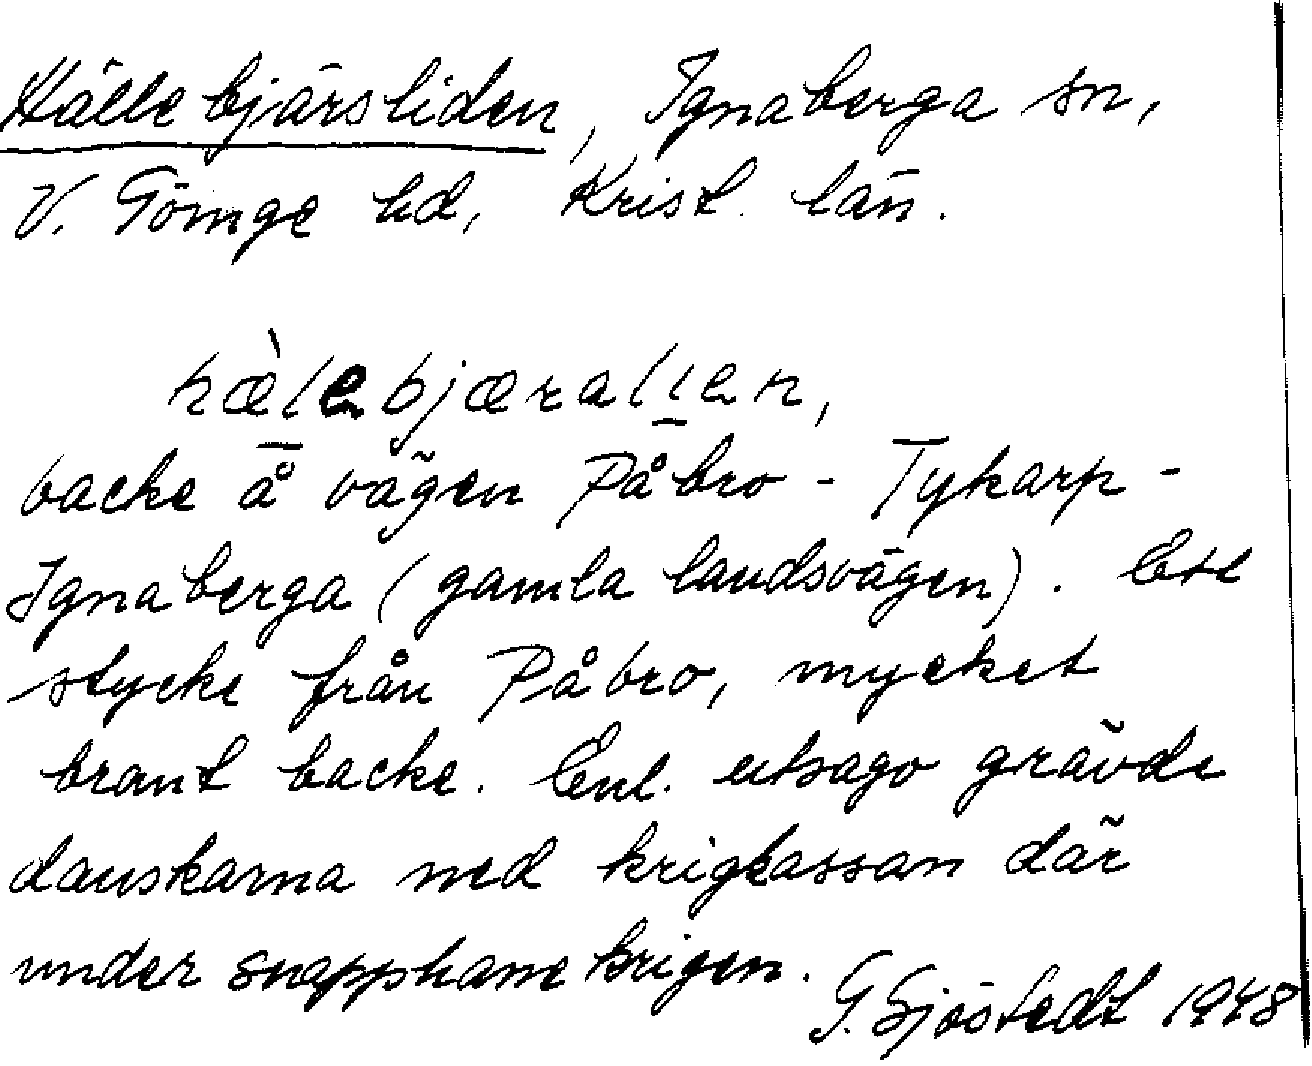 Hällebjärsliden, Ignaberga sn,
V. Göinge hd, Krist. län.
hæ̀lebjæralıen,
backe å vägen Påbro - Tykarp -
Ignaberga (gamla landsvägen). Ett
stycke från Påbro, mycket
brant backe. Enl. utsago grävde
danskarna ned krigskassan där
under snapphanekrigen.
G. Sjöstedt 1948